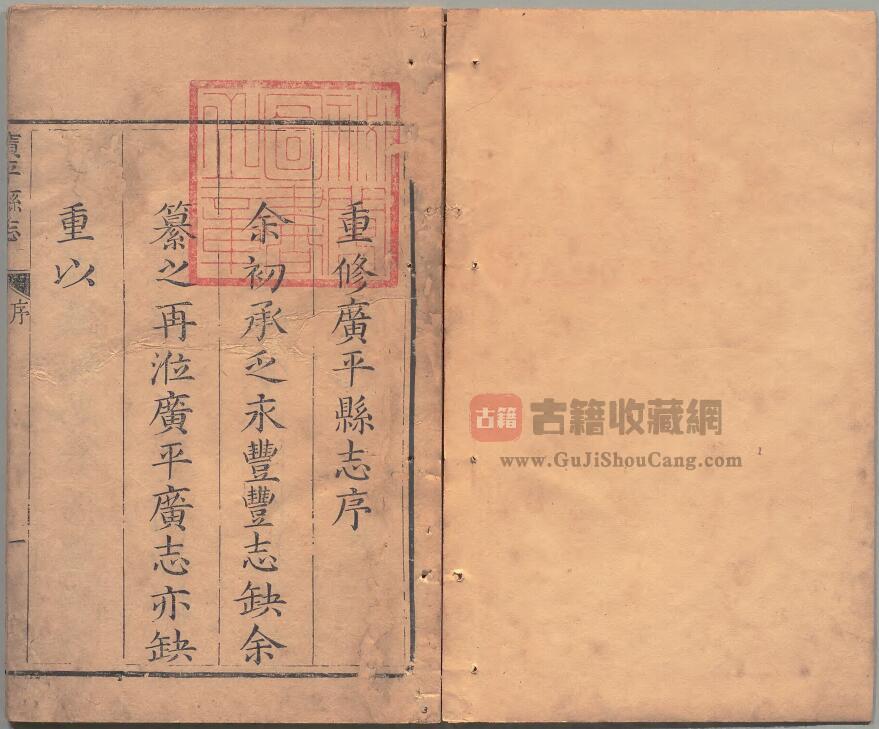 重修廣平縣志序
余初承乏永豐豐志缺余
纂之再涖廣平廣志亦缺
重以
廣平縣志
序
一
3
古籍
古籍收藏網
www.GuJiShouCang.com